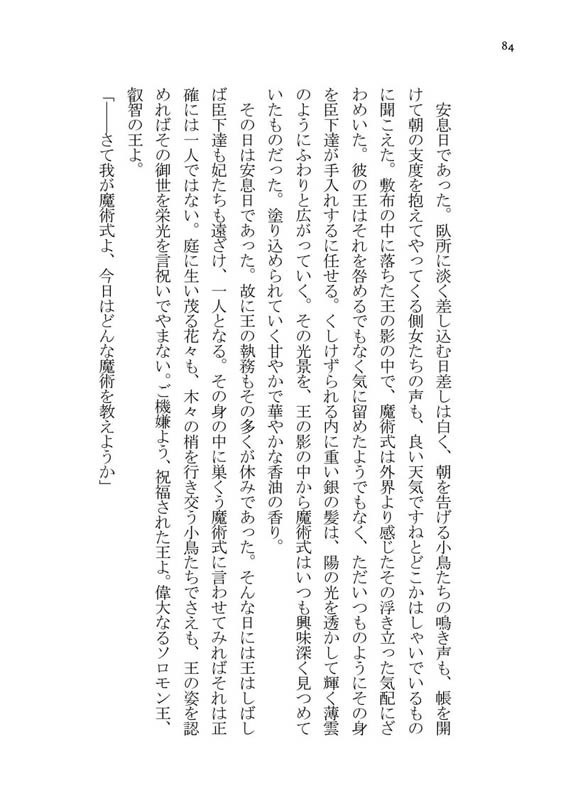 84
安息日であった。臥所に淡く差し込む日差しは白く、朝を告げる小鳥たちの鳴き声も、帳を開
けて朝の支度を抱えてやってくる側女たちの声も、良い天気ですねとどこかはしゃいでいるもの
に聞こえた。敷布の中に落ちた王の影の中で、魔術式は外界より感じたその浮き立った気配にざ
わめいた。彼の王はそれを咎めるでもなく気に留めたようでもなく、ただいつものようにその身
を臣下達が手入れするに任せる。くしけずられる内に重い銀の髪は、陽の光を透かして輝く薄雲
のようにふわりと広がっていく。その光景を、王の影の中から魔術式はいつも興味深く見つめて
いたものだった。塗り込められていく甘やかで華やかな香油の香り。
その日は安息日であった。故に王の執務もその多くが休みであった。そんな日には王はしばし
ば臣下達も妃たちも遠ざけ、一人となる。その身の中に巣くう魔術式に言わせてみればそれは正
確には一人ではない。庭に生い茂る花々も、木々の梢を行き交う小鳥たちでさえも、王の姿を認
めればその御世を栄光を言祝いでやまない。ご機嫌よう、祝福された王よ。偉大なるソロモン王、
叡智の王よ。
「――さて我が魔術式よ、今日はどんな魔術を教えようか」